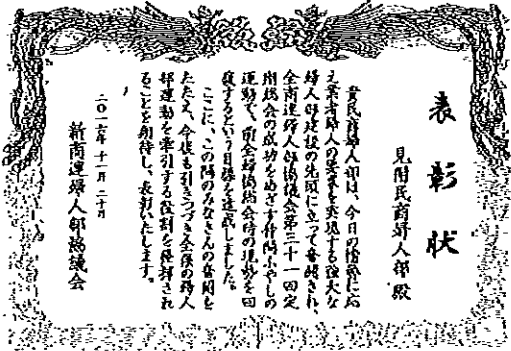 表彰状
見附民商婦人部殿
貴民商婦人部は、今日の情勢に応
え業者婦人の要求を実現する強大な
婦人部建設の先頭に立って奮闘され、
全商連婦人部協議会第三十一回定
期総会の成功をめざす仲間ふやしの
運動で、前全婦協総会時の現勢を回
復するという目標を達成しました。
ここに、この間のみなさんの奮闘を
たたえ、今後も引きつづき全県の婦人
部運動を牽引する役割を発揮され
ることを期待し、表彰いたします。
二〇一六年十一月二十日
新商連婦人部協議会